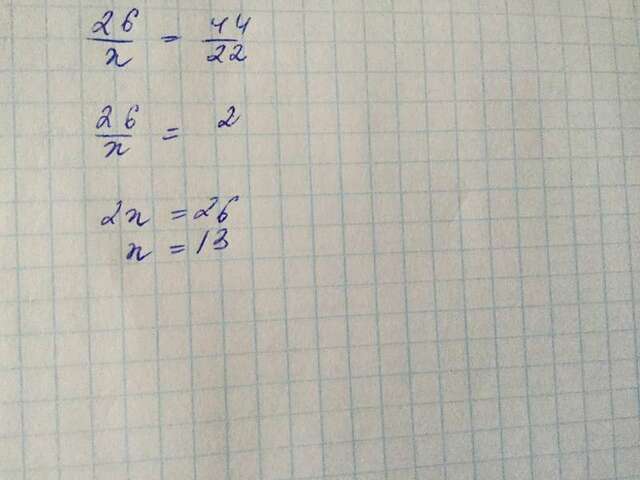 26/x = 44/22
26/x = 2
2x = 26
x = 13